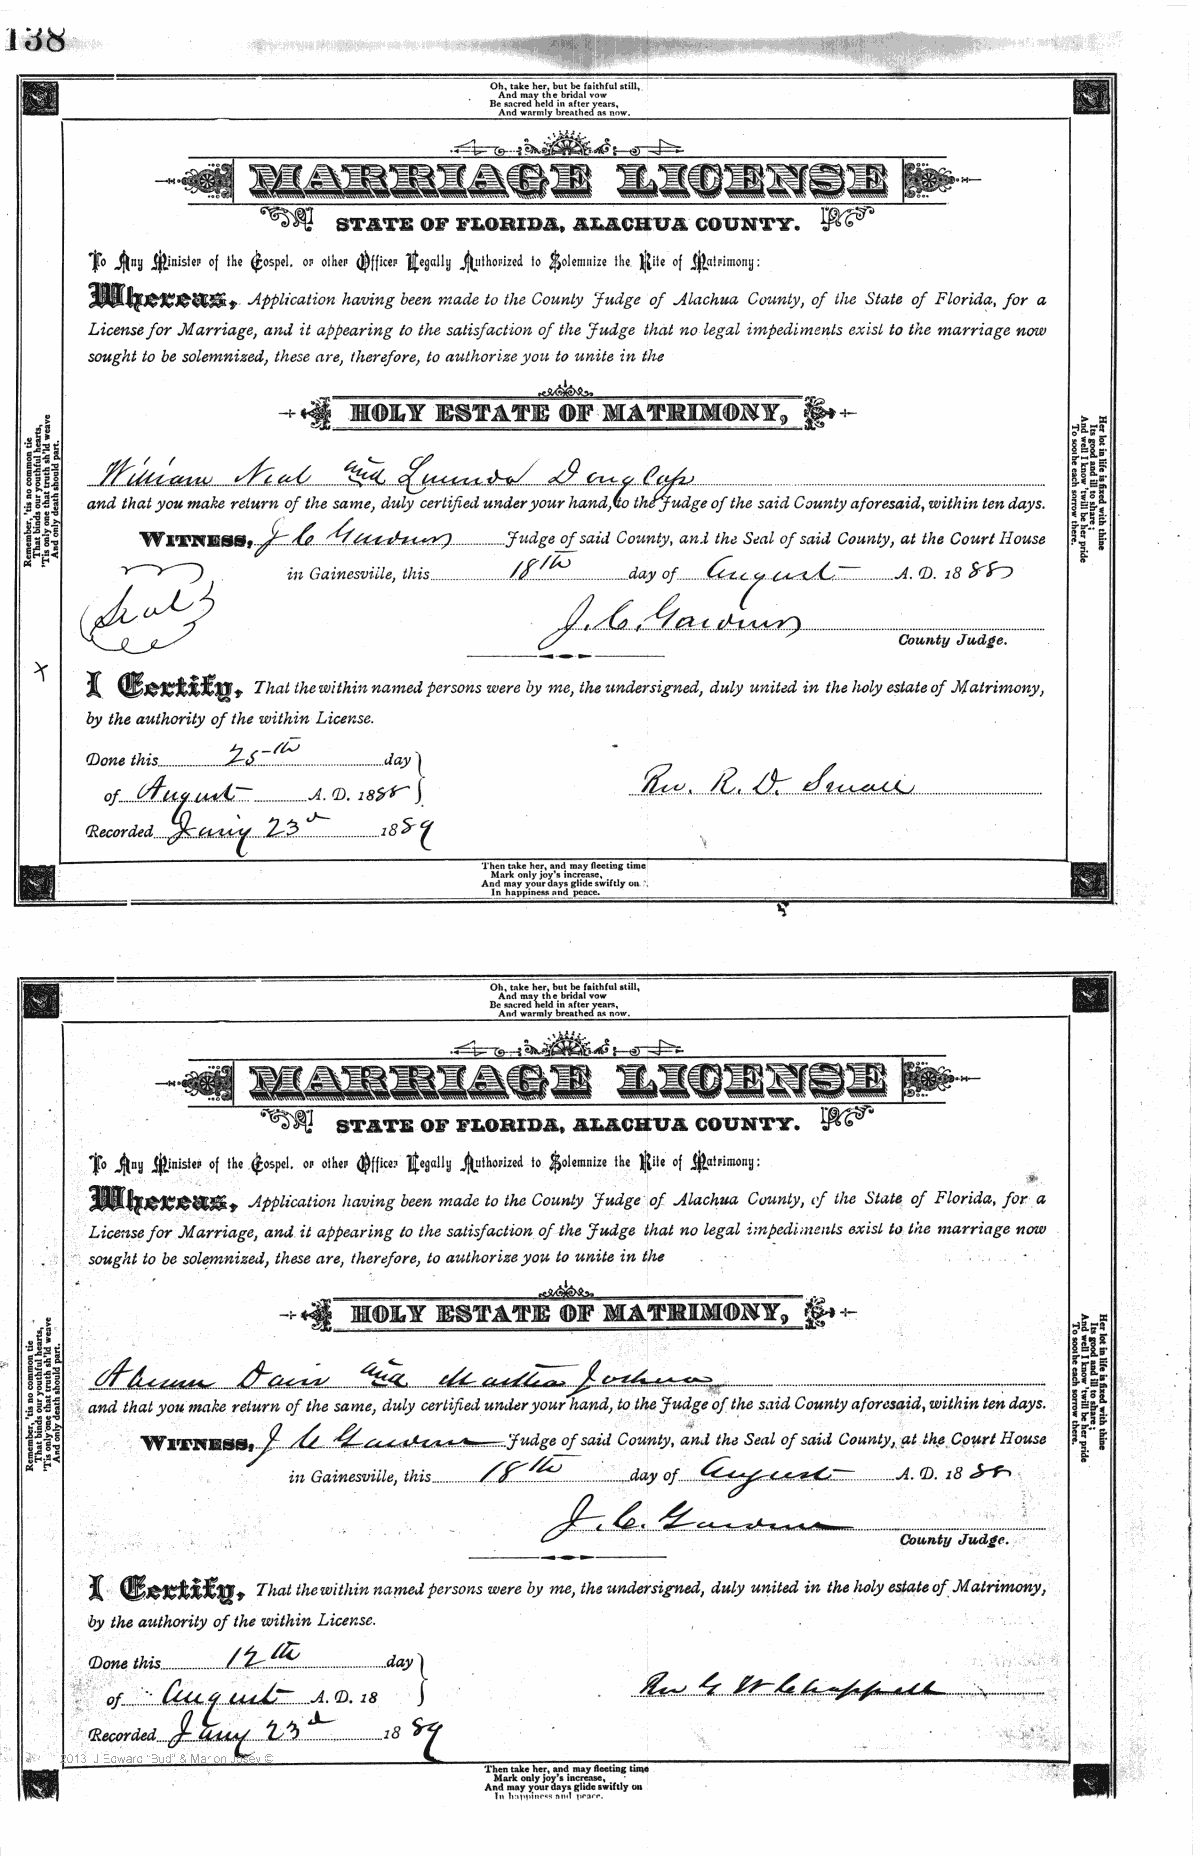 138
Oh, take her, but be faithful still,
And may the bridal vow
Be sacred held in after years,
And warmly breathed as now.
MARRIAGE LICENSE
STATE OF FLORIDA, ALACHUA COUNTY.
To Any Minister of the Gospel, or other Officer Legally Authorized to Solemnize the Rite of Matrimony:
Whereas, Application having been made to the County Judge of Alachua County, of the State of Florida, for a
License for Marriage, and it appearing to the satisfaction of the Judge that no legal impediments exist to the marriage now
sought to be solemnized, these are, therefore, to authorize you to unite in the
HOLY ESTATE OF MATRIMONY,
William Neal and
and that you make return of the same, duly certified under your hand, to the Judge of the said County aforesaid, within ten days.
WITNESS, J C Gardner Judge of said County, and the Seal of said County, at the Court House
in Gainesville, this 18th day of August A. D. 1888
(Seal)
J. C. Gardner
County Judge.
X
I Certify, That the within named persons were by me, the undersigned, duly united in the holy estate of Matrimony,
by the authority of the within License.
Done this 25th day
of August A. D. 1888
Rev. R. D. Small
Recorded Jany 23d 1889
Then take her, and may fleeting time
Mark only joy's increase,
And may your days glide swiftly on
In happiness and peace.
Remember, 'tis no common tie
That binds our youthful hearts,
'Tis only one that truth sh'ld weave
And only death should part.
Her lot in life is fixed with thine
Its good and ill to share;
And well I know 'twill be her pride
To soothe each sorrow there.
Oh, take her, but be faithful still,
And may the bridal vow
Be sacred held in after years,
And warmly breathed as now.
MARRIAGE LICENSE
STATE OF FLORIDA, ALACHUA COUNTY.
To Any Minister of the Gospel, or other Officer Legally Authorized to Solemnize the Rite of Matrimony:
Whereas, Application having been made to the County Judge of Alachua County, of the State of Florida, for a
License for Marriage, and it appearing to the satisfaction of the Judge that no legal impediments exist to the marriage now
sought to be solemnized, these are, therefore, to authorize you to unite in the
HOLY ESTATE OF MATRIMONY,
and Martha Joshua
and that you make return of the same, duly certified under your hand, to the Judge of the said County aforesaid, within ten days.
WITNESS, J C Gardner Judge of said County, and the Seal of said County, at the Court House
in Gainesville, this 18th day of August A. D. 1888
J. C. Gardner
County Judge.
I Certify, That the within named persons were by me, the undersigned, duly united in the holy estate of Matrimony,
by the authority of the within License.
Done this 19th day
of August A. D. 18
Rev G W Chappell
Recorded Jany 23d 1889
2013 J Edward "Bud" & Marion Josey ©
Then take her, and may fleeting time
Mark only joy's increase,
And may your days glide swiftly on
In happiness and peace.
Remember, 'tis no common tie
That binds our youthful hearts,
'Tis only one that truth sh'ld weave
And only death should part.
Her lot in life is fixed with thine
Its good and ill to share;
And well I know 'twill be her pride
To soothe each sorrow there.